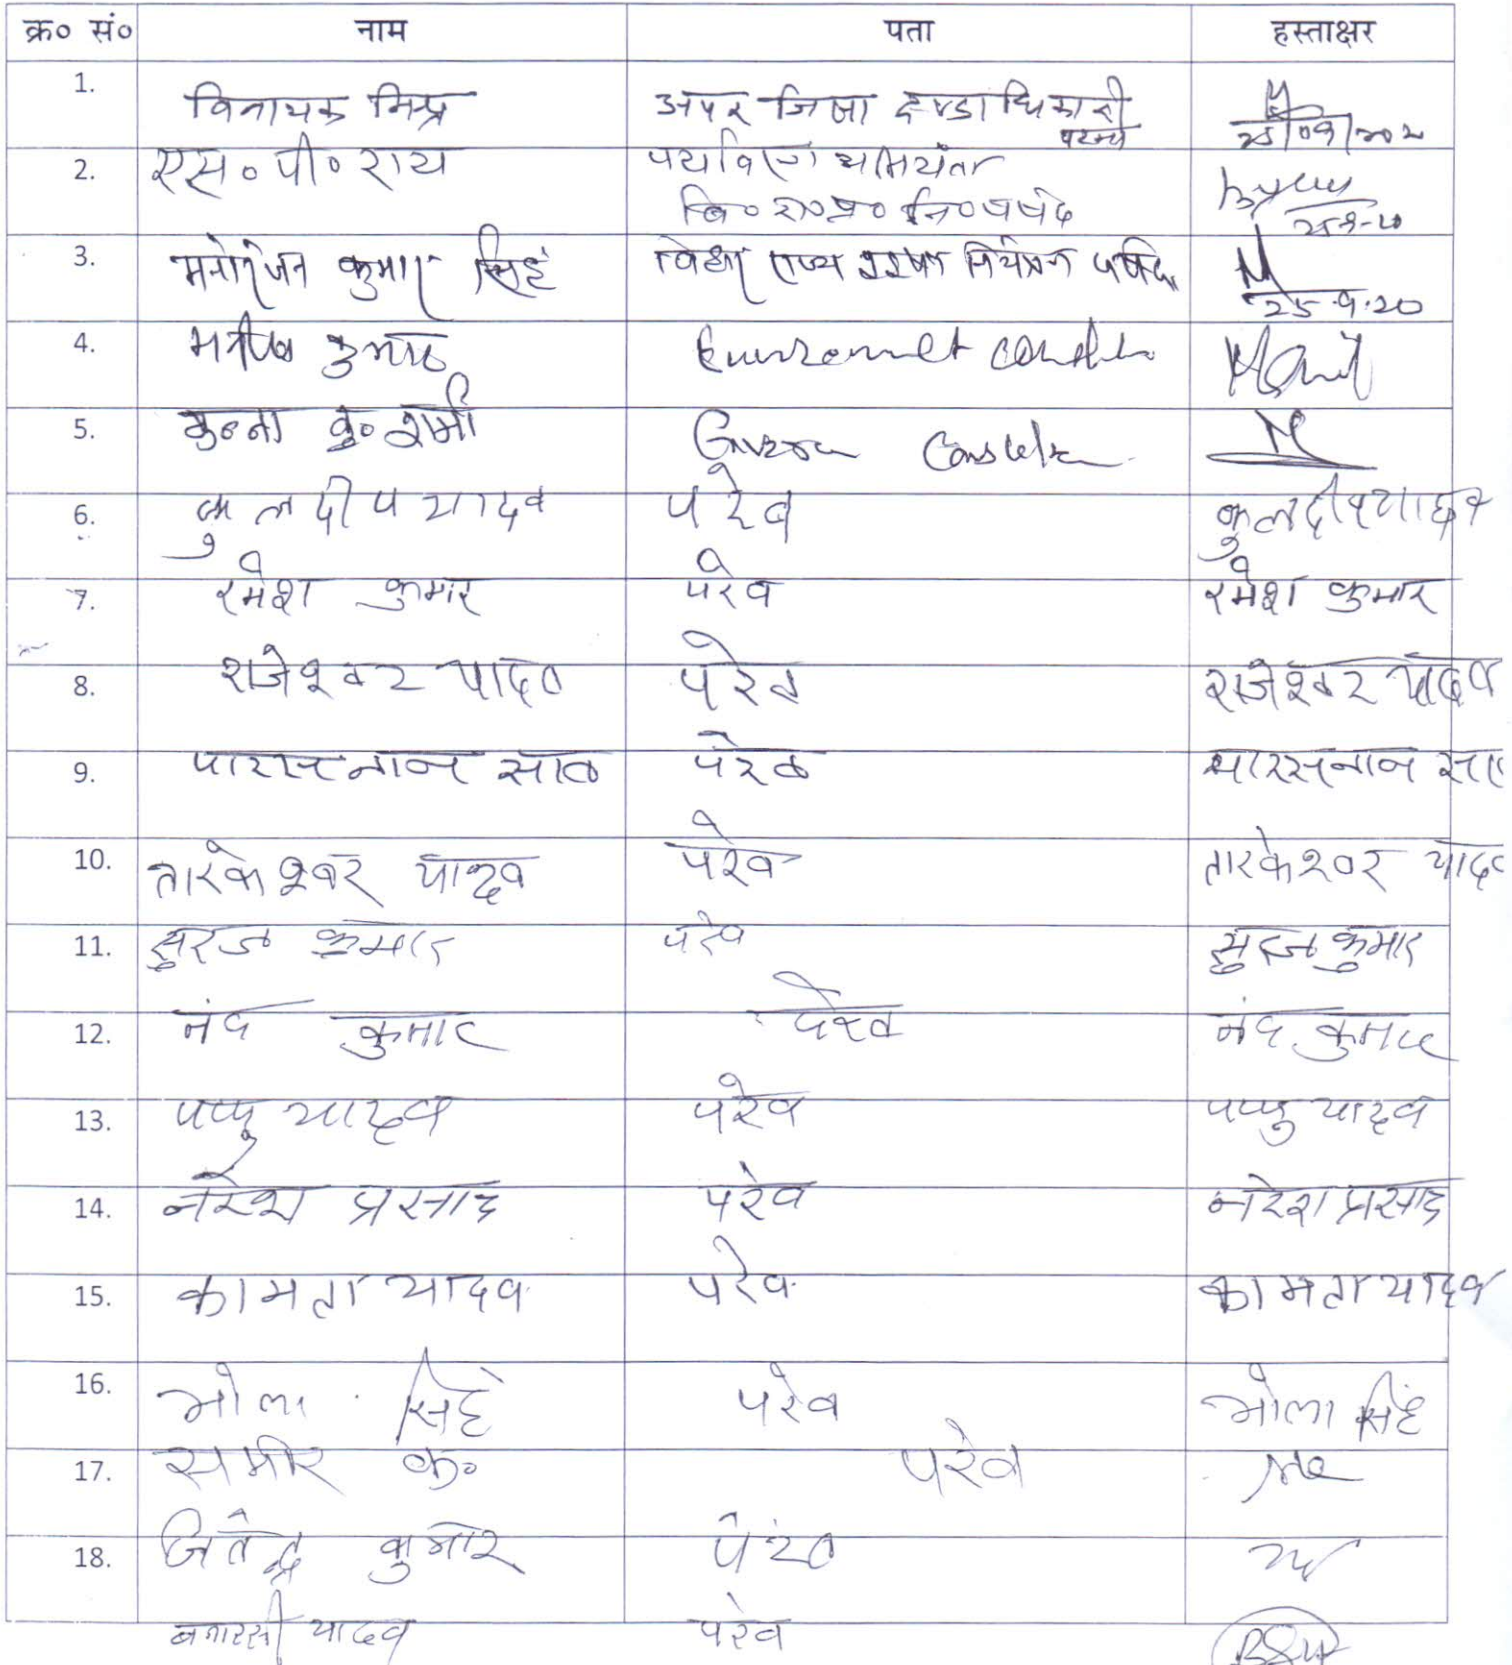 क्र० सं० नाम पता हस्ताक्षर
1. विनायक मिश्र अपर जिला दण्डाधिकारी
पटना
25/09/202
2. एस० पी० राय पर्यावरण अभियंता
बि० रा० प्र० नि० पर्षद
25-9-20
3. मनोरंजन कुमार सिंह राज्य प्रदूषण नियंत्रण पर्षद
25.9.20
4. मनीष कुमार
5. मुन्ना कु० शर्मा
6. कुलदीप यादव परेव कुलदीप यादव
7. रमेश कुमार परेव रमेश कुमार
8. राजेश्वर यादव परेव राजेश्वर यादव
9. परेव
10. तारकेश्वर यादव परेव तारकेश्वर यादव
11. सुरज कुमार परेव सुरज कुमार
12. नंद कुमार परेव नंद कुमार
13. पप्पु यादव परेव पप्पु यादव
14. नरेश प्रसाद परेव नरेश प्रसाद
15. कामता यादव परेव कामता यादव
16. भोला सिंह परेव भोला सिंह
17. समीर कु० परेव
18. जितेन्द्र कुमार परेव
बनारसी यादव परेव